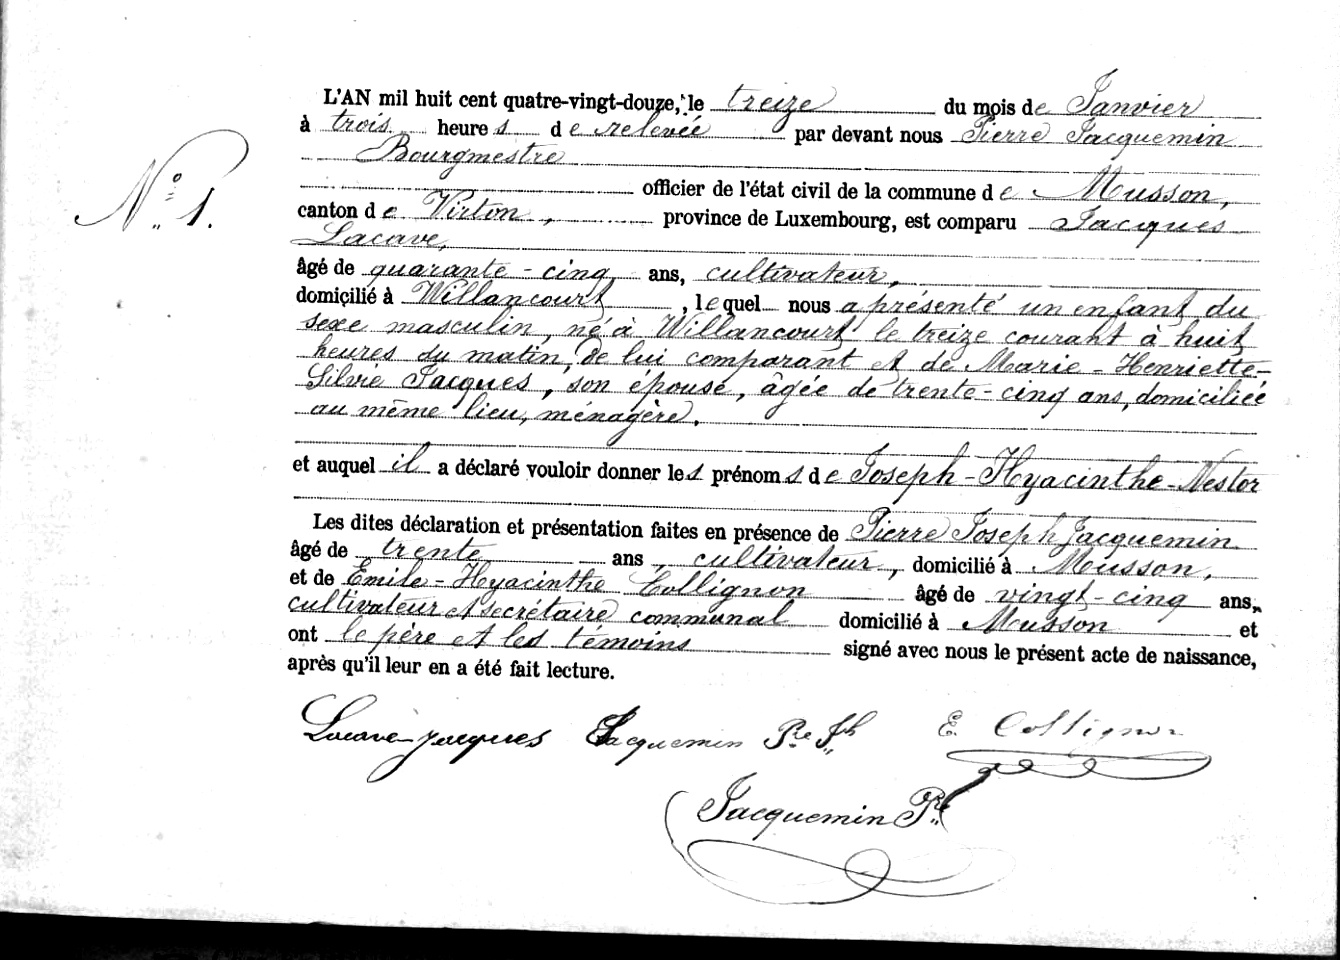 L'AN mil huit cent quatre-vingt-douze, le treize du mois de Janvier
à trois heures de relevée par devant nous Pierre Jacquemin
Bourgmestre
N° 1.
officier de l'état civil de la commune de Musson,
canton de Virton, province de Luxembourg, est comparu Jacques
Lacave,
âgé de quarante-cinq ans, cultivateur,
domicilié à Willancourt, lequel nous a présenté un enfant du
sexe masculin, né à Willancourt le treize courant à huit
heures du matin, de lui comparant et de Marie-Henriette-
Silvie Jacques, son épouse, âgée de trente-cinq ans, domiciliée
au même lieu, ménagère.
et auquel il a déclaré vouloir donner les prénoms de Joseph-Hyacinthe-Nestor
Les dites déclaration et présentation faites en présence de Pierre Joseph Jacquemin
âgé de trente ans, cultivateur, domicilié à Musson,
et de Emile-Hyacinthe Collignon âgé de vingt-cinq ans,
cultivateur et secrétaire communal domicilié à Musson et
ont le père et les témoins signé avec nous le présent acte de naissance,
après qu'il leur en a été fait lecture.
Lacave-jacques Jacquemin Pre Jh E. Collignon
Jacquemin Pre